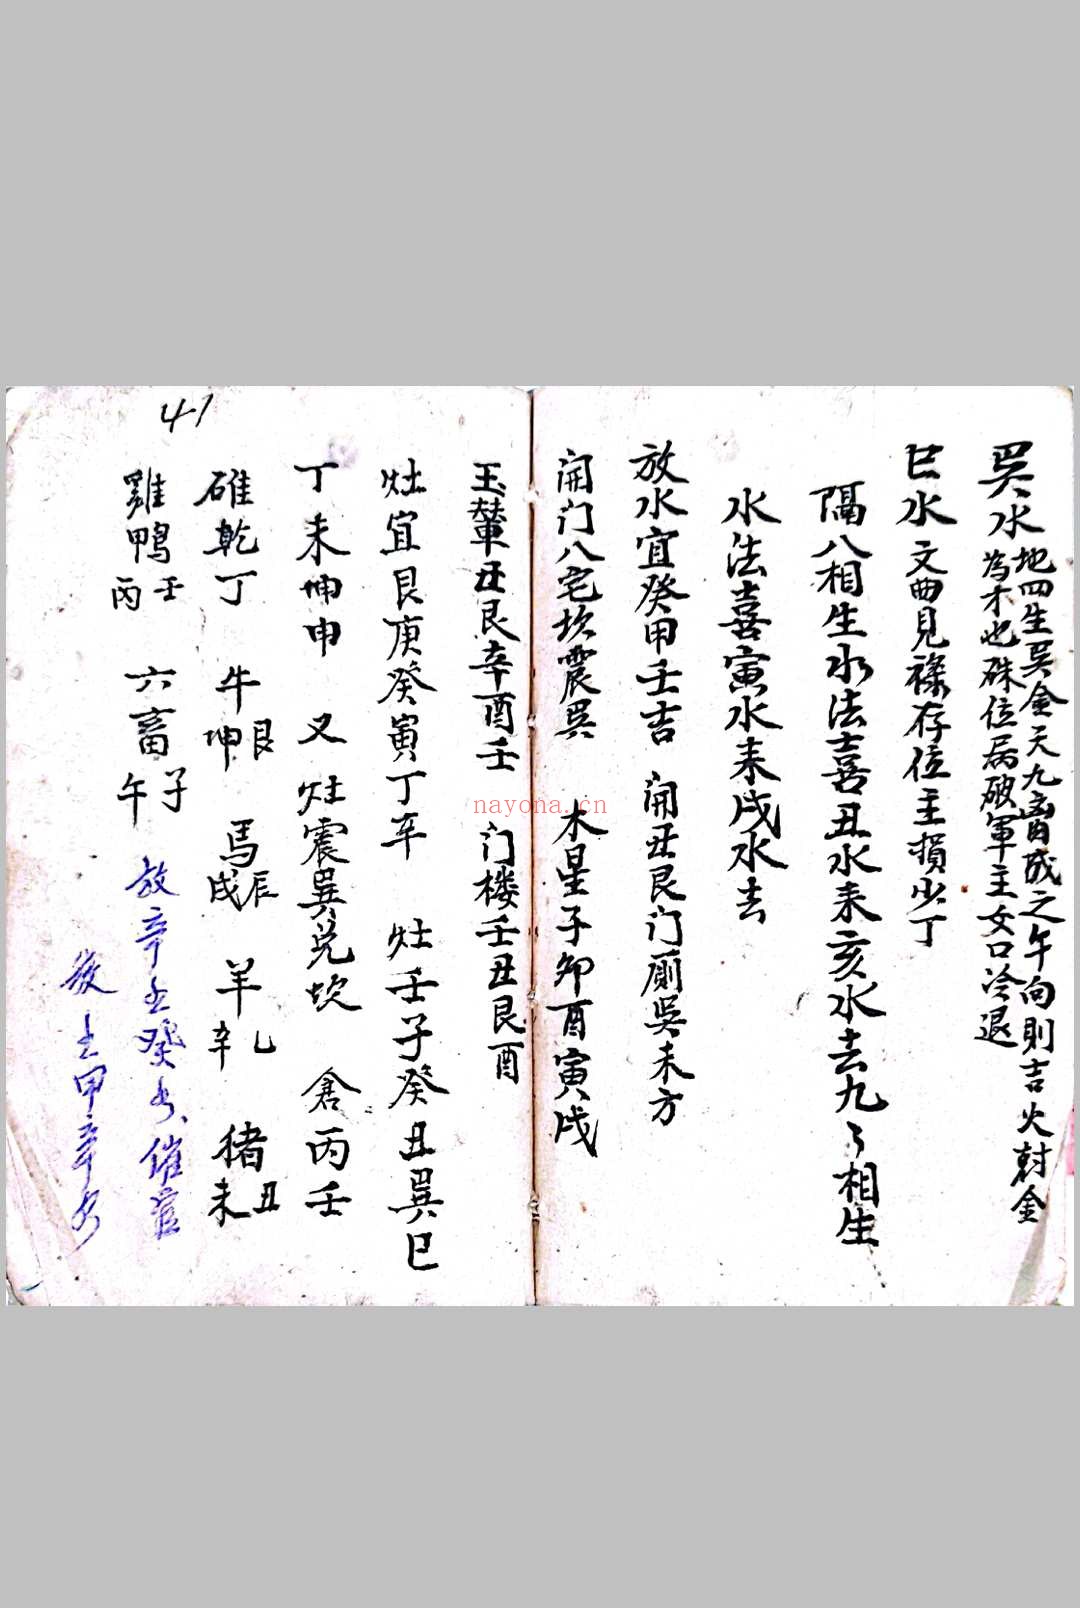 巽水
地四生巽金天九酉成之午向則吉火尅金
為木也殊位病破軍主女口冷退
巳水文曲見祿存位主損少丁
隔八相生水法喜丑水来亥水去九了相生
水法喜寅水来戌水去
放水宜癸甲壬吉 開丑艮门厠巽未方
開门八宅坎震巽 木星子卯酉寅戌
玉輦丑艮辛酉壬 门楼壬丑艮酉
灶宜艮庚癸寅丁辛 灶壬子癸丑巽巳
丁未坤申 又灶震巽兑坎 倉丙壬
碓乾丁 牛艮坤 馬辰戌 羊乙辛 猪丑未
雞鴨壬丙 六畜子午 放辛壬癸水催官
放壬甲辛水
41
nayona.cn